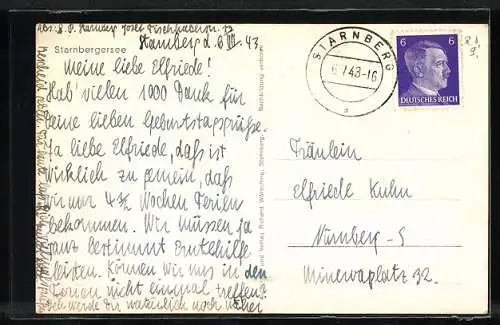 Starnberg d. 6. VII. 43
Starnbergersee
Meine liebe Elfriede!
Hab' vielen 1000 Dank für
Deine lieben Geburtstagsgrüße.
Ja liebe Elfriede, daß ist
wirklich zu gemein, daß
wir nur 4 ¾ Wochen Ferien
bekommen. Wir müssen ja
ganz bestimmt Erntehilfe
leisten. Können wir uns in den
Ferien nicht einmal treffen?
Ich werde Dir natürlich noch näher
STARNBERG
6.7.43-16
a
6 6
DEUTSCHES REICH
Fräulein
Elfriede Kuhn
Nürnberg-S
Minervaplatz 32.